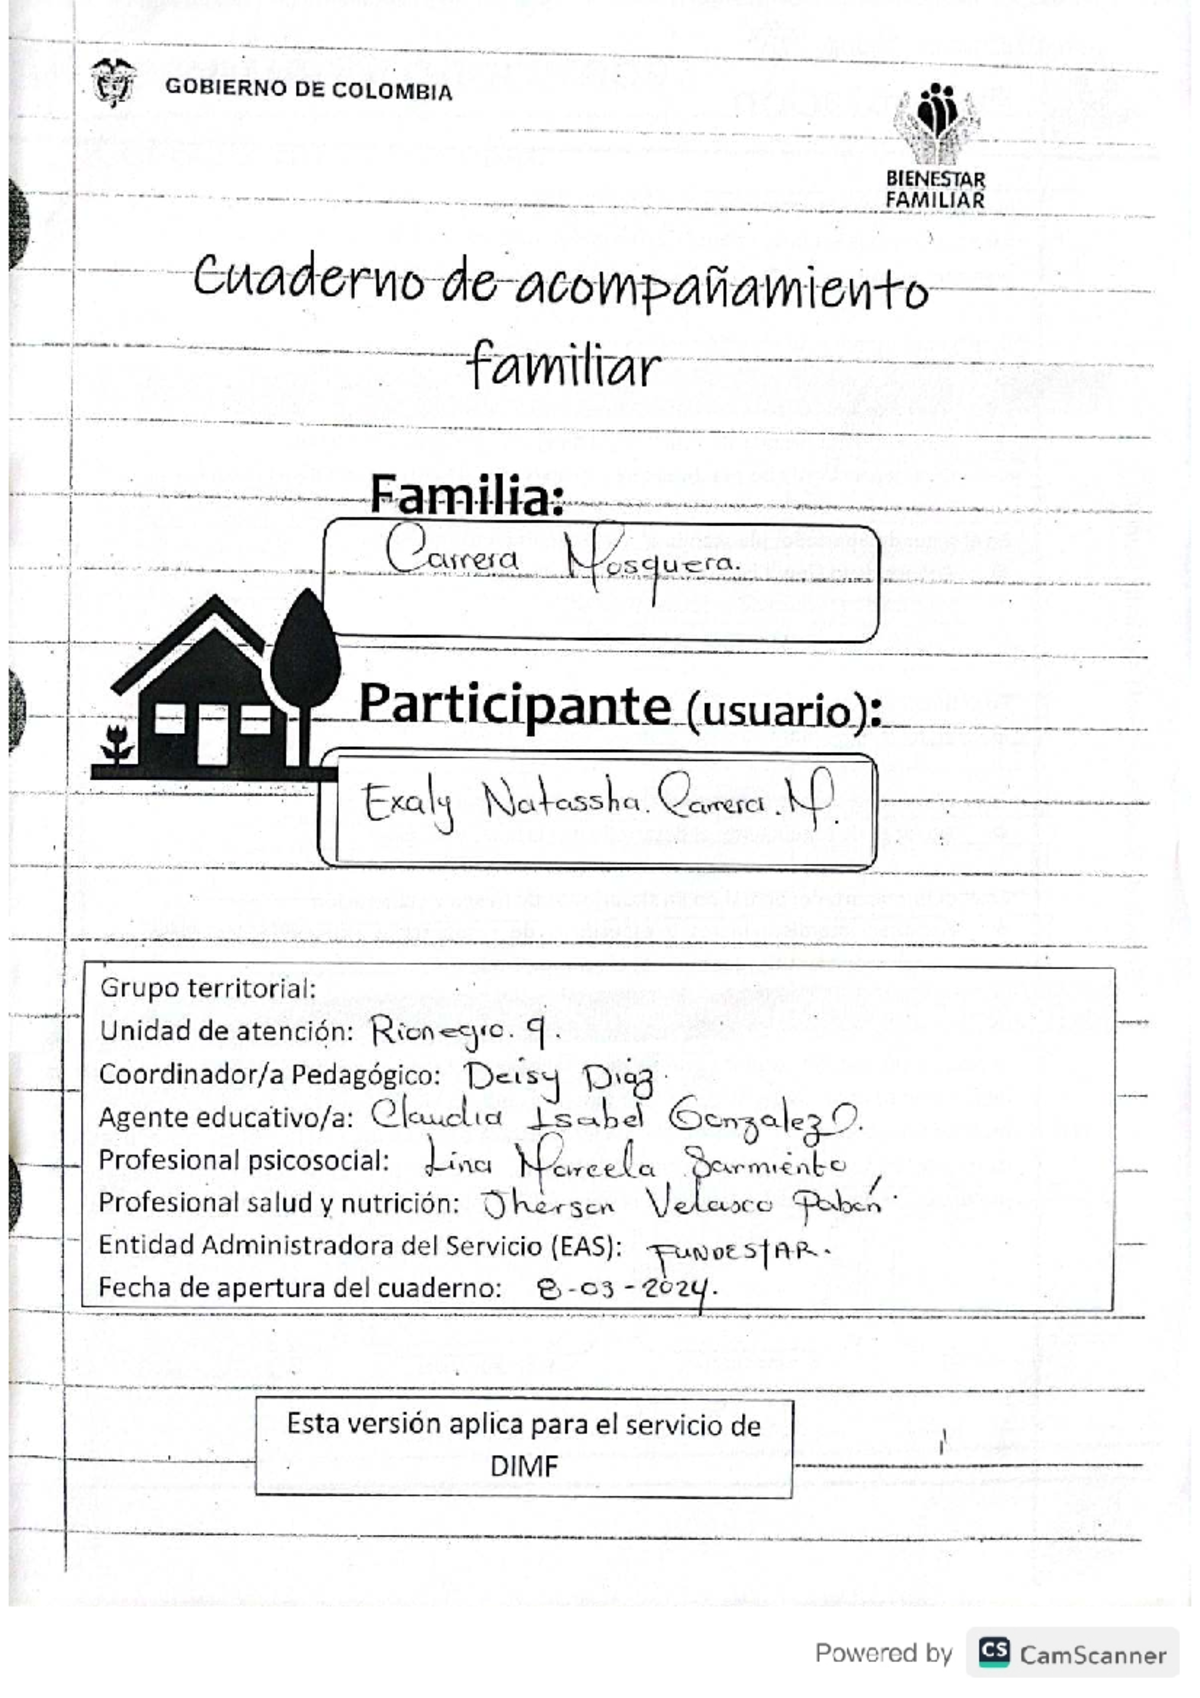 GOBIERNO DE COLOMBIA
BIENESTAR
FAMILIAR
Cuaderno de acompañamiento
familiar
Familia:
Carrera Mosquera.
Participante (usuario):
Exaly Natassha. Carrera. M.
Grupo territorial:
Unidad de atención: Rionegro. 9.
Coordinador/a Pedagógico: Deisy Diaz.
Agente educativo/a: Claudia Isabel Gonzalez O.
Profesional psicosocial: Lina Marcela Sarmiento
Profesional salud y nutrición: Jherson Velasco Pabón.
Entidad Administradora del Servicio (EAS): FUNDESTAR.
Fecha de apertura del cuaderno: 8-03-2024.
Esta versión aplica para el servicio de
DIMF
Powered by CS CamScanner